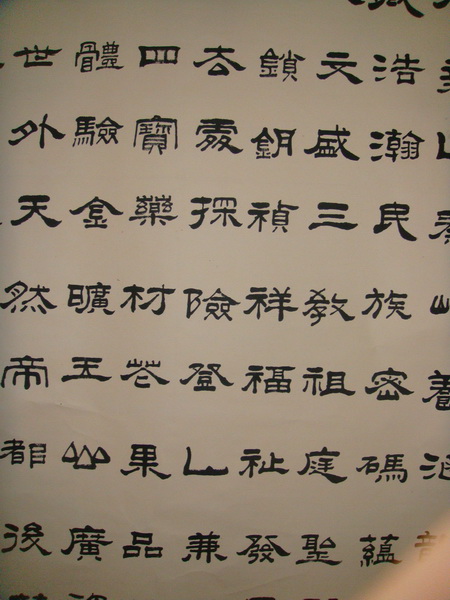 浩瀚民族密碼蘊
文盛三教祖庭聖
鎖鈅禎祥福祉發
去處探險登山兼
四寶藥材花果品
體驗金曠玉山廣
世外天然帝都後